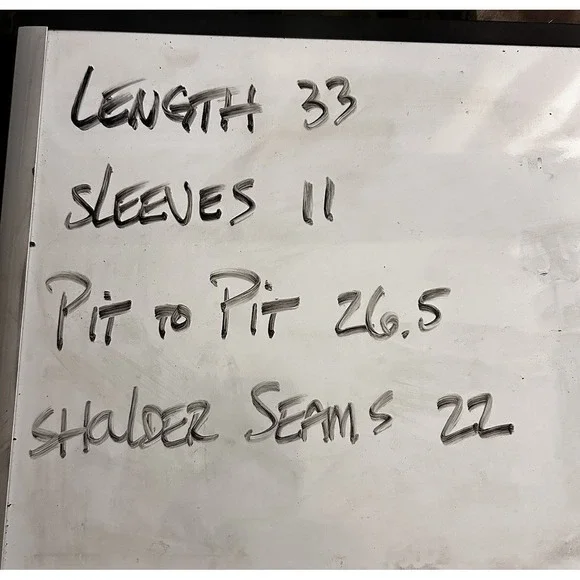 LENGTH 33
SLEEVES 11
PIT TO PIT 26.5
SHOLDER SEAMS 22